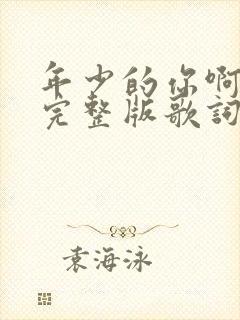 年少的你啊
完整版歌詞
袁海泳